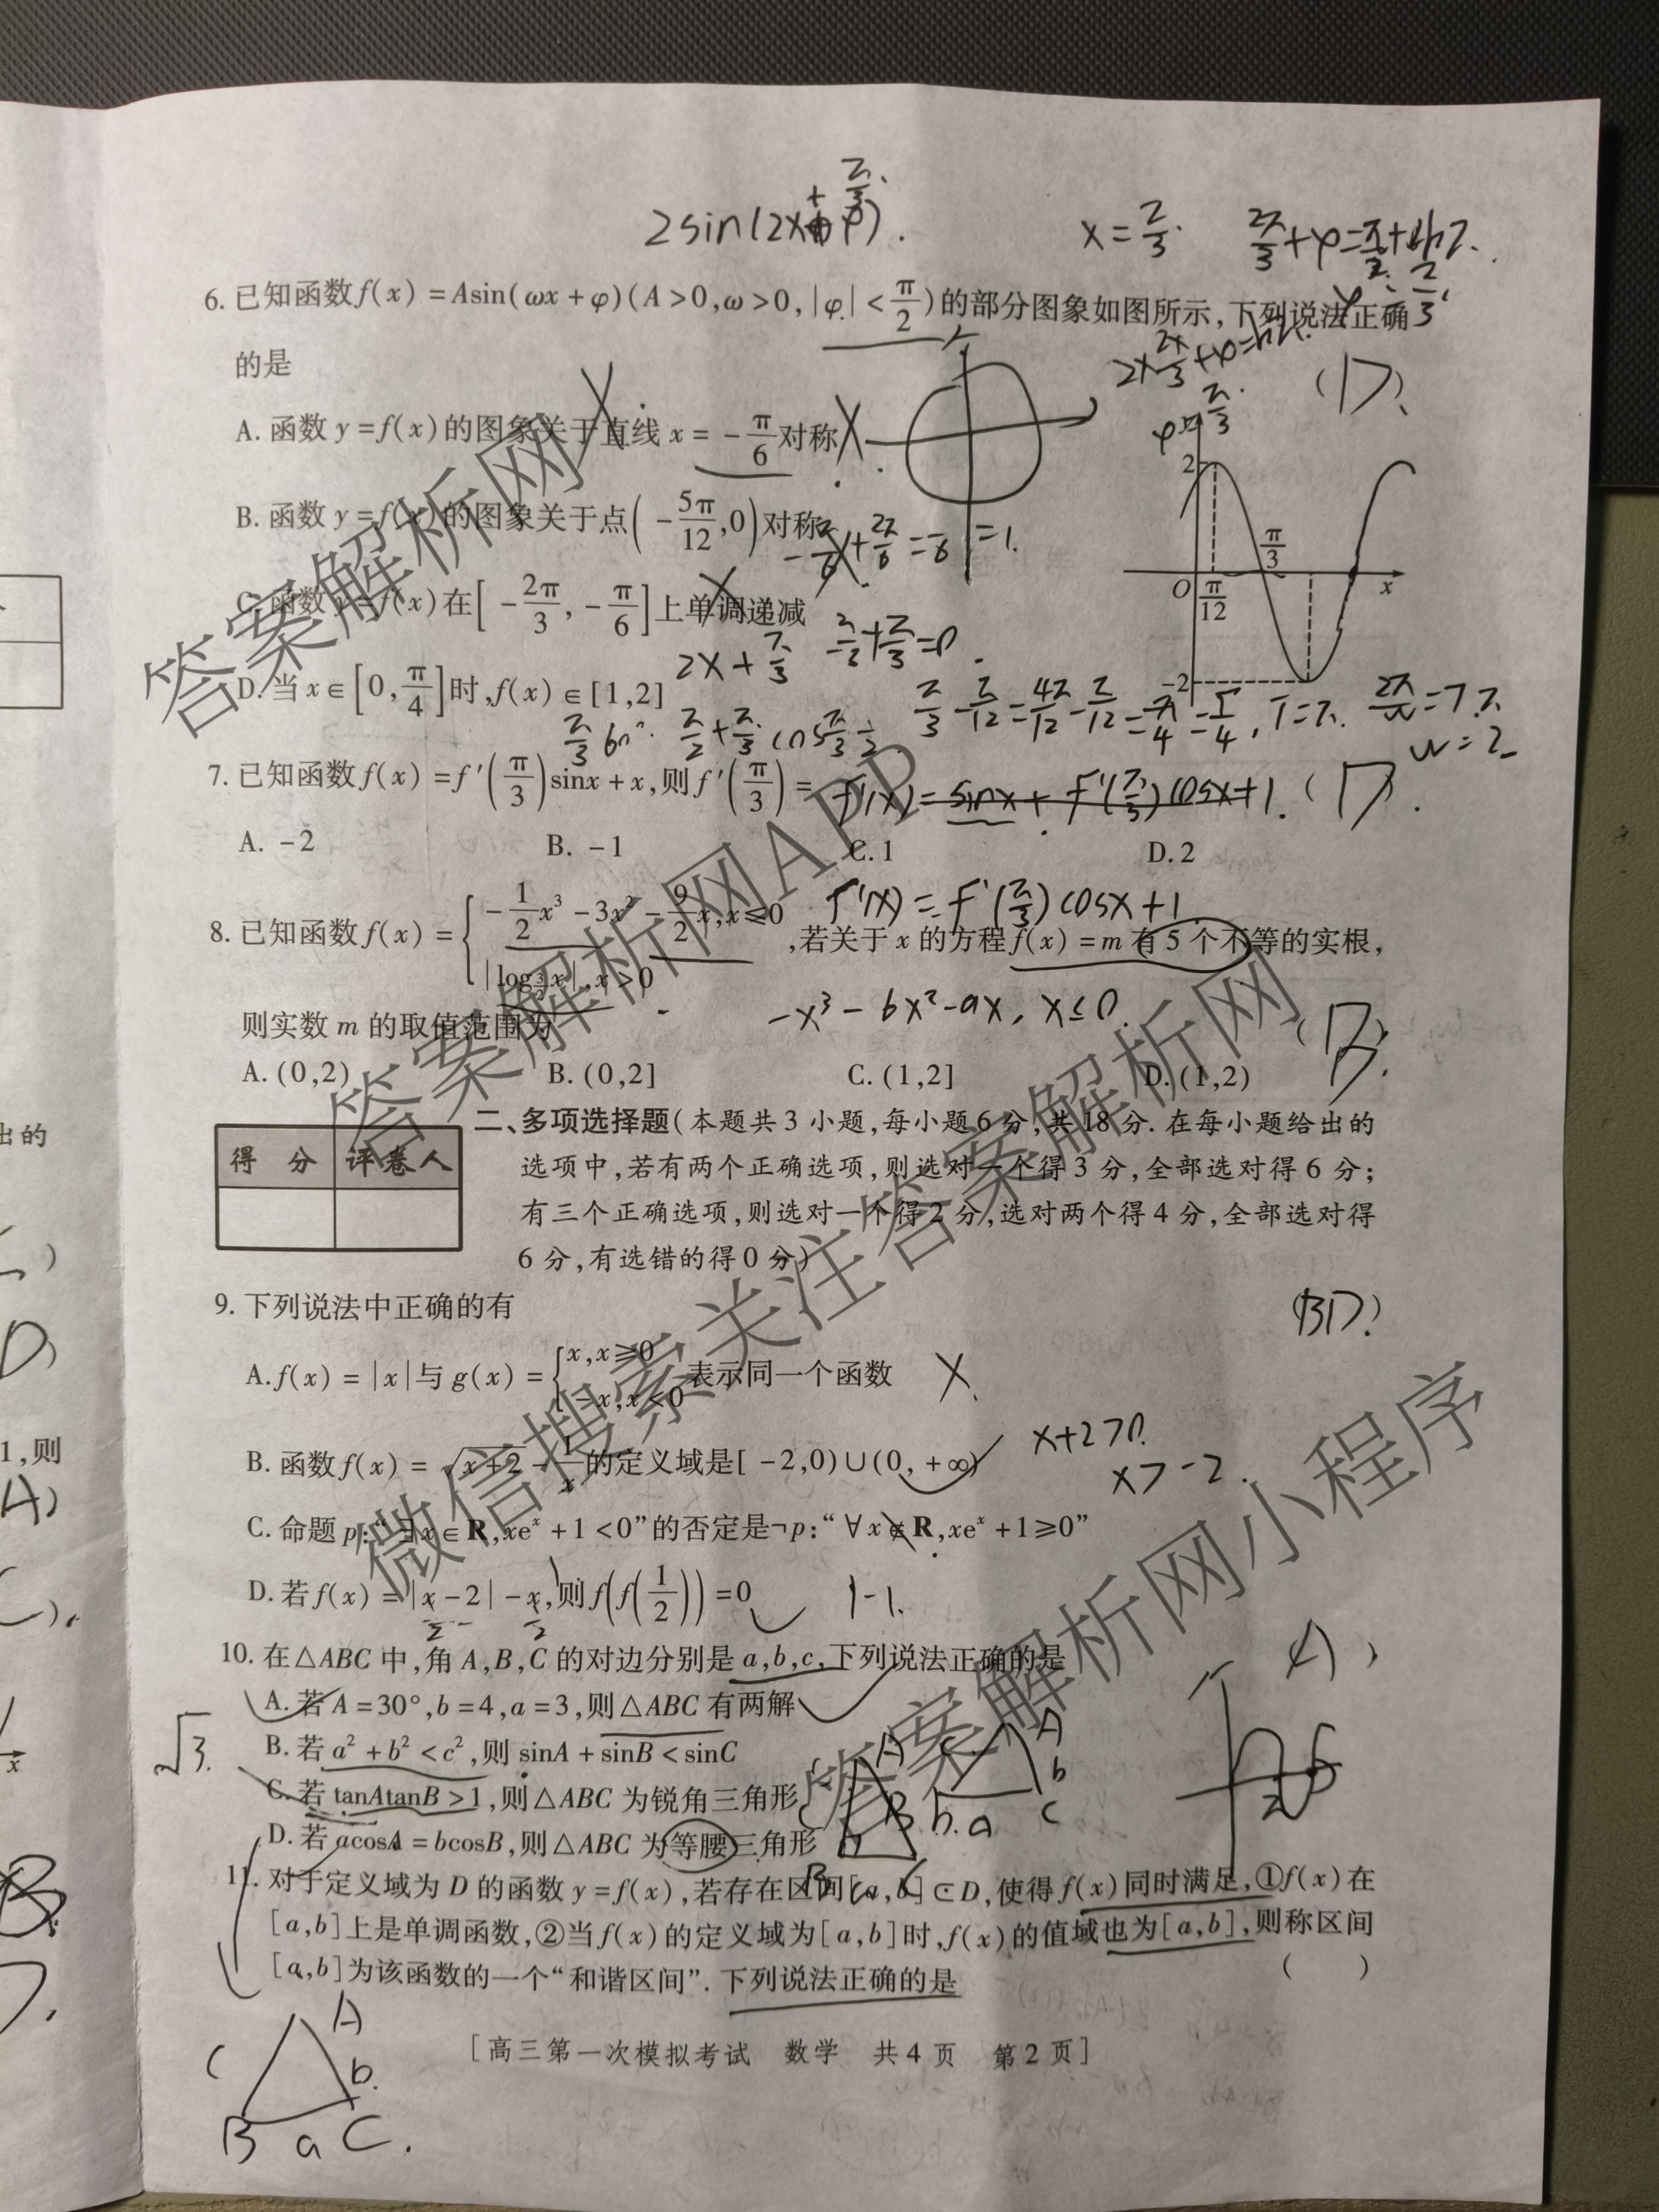 2sin(2x+φ).
x=π/3.
6. 已知函数f(x)=Asin(ωx+φ)(A>0,ω>0,|φ|<π/2)的部分图象如图所示,下列说法正确
的是
(D)
A. 函数y=f(x)的图象关于直线x=-π/6对称
B. 函数y=f(x)的图象关于点(-5π/12,0)对称
C. 函数y=f(x)在[-2π/3,-π/6]上单调递减
D. 当x∈[0,π/4]时,f(x)∈[1,2]
2
π/3
O
π/12
x
-2
2x+π/3
T=π.
w=2
7. 已知函数f(x)=f′(π/3)sinx+x,则f′(π/3)=
(D).
A. -2
B. -1
C. 1
D. 2
f'(x)=f'(π/3)cosx+1
8. 已知函数f(x)={-1/2x³-3x²-9/2x,x≤0
|log_{3/2}x|,x>0
,若关于x的方程f(x)=m有5个不等的实根,
则实数m的取值范围为
-x³-6x²-9x, x≤0.
A. (0,2)
B. (0,2]
C. (1,2]
D. (1,2)
得 分
评卷人
二、多项选择题(本题共3小题,每小题6分,共18分.在每小题给出的
选项中,若有两个正确选项,则选对一个得3分,全部选对得6分;
有三个正确选项,则选对一个得2分,选对两个得4分,全部选对得
6分,有选错的得0分)
9. 下列说法中正确的有
(BD)
A. f(x)=|x|与g(x)={x,x≥0
-x,x<0
表示同一个函数
B. 函数f(x)=√(x+2)-1/x的定义域是[-2,0)∪(0,+∞)
x+2>0.
x>-2.
C. 命题p:“∃x∈R,xeˣ+1<0”的否定是¬p:“∀x∉R,xeˣ+1≥0”
D. 若f(x)=|x-2|-x,则f(f(1/2))=0
1-1.
10. 在△ABC中,角A,B,C的对边分别是a,b,c,下列说法正确的是
(A)
A. 若A=30°,b=4,a=3,则△ABC有两解
√3.
B. 若a²+b²<c²,则sinA+sinB<sinC
C. 若tanAtanB>1,则△ABC为锐角三角形
D. 若acosA=bcosB,则△ABC为等腰三角形
11. 对于定义域为D的函数y=f(x),若存在区间[a,b]⊂D,使得f(x)同时满足,①f(x)在
[a,b]上是单调函数,②当f(x)的定义域为[a,b]时,f(x)的值域也为[a,b],则称区间
[a,b]为该函数的一个“和谐区间”.下列说法正确的是
( )
[高三第一次模拟考试 数学 共4页 第2页]
A
C
b.
B a C.
出的
1,则
答案解析网
答案解析网APP
微信搜索关注答案解析网
答案解析网小程序